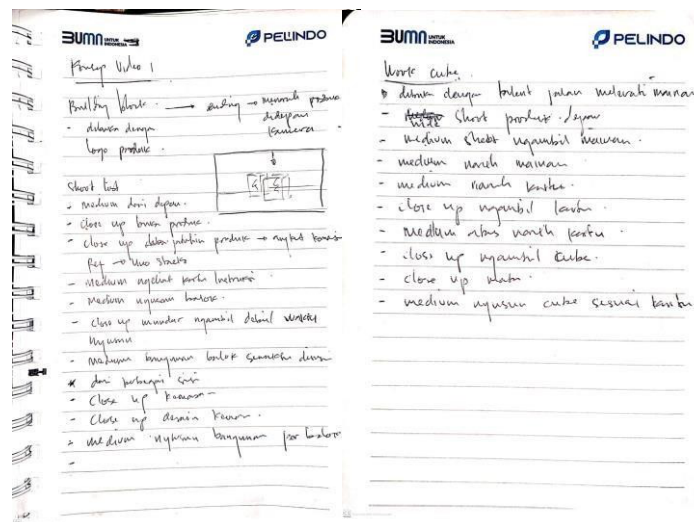 BUMN UNTUK INDONESIA
PELINDO
Konsep Video 1
Building block. → ending → menaruh produk
didepan
kamera
- dibuka dengan
logo produk.
Shoot list
- medium dari depan.
- close up buka produk.
- close up produk →
Ref → Uno Stacko
- medium ngeliat kartu Instruksi.
- medium nyusun balok.
- close up mundur ngambil detail waktu
nyusun
- medium bangunan balok
* dari berbagai sisi
- close up
- close up desain
- medium nyusun bangunan balok
-
BUMN UNTUK INDONESIA
PELINDO
Work cube.
dibuka dengan talent jalan melewati mainan
- wide shoot produk depan
- medium shoot ngambil mainan.
- medium naruh mainan.
- medium naruh kartu.
- close up ngambil kartu.
- medium atas naruh kartu.
- close up ngambil cube.
- close up mata.
- medium nyusun cube sesuai kartu